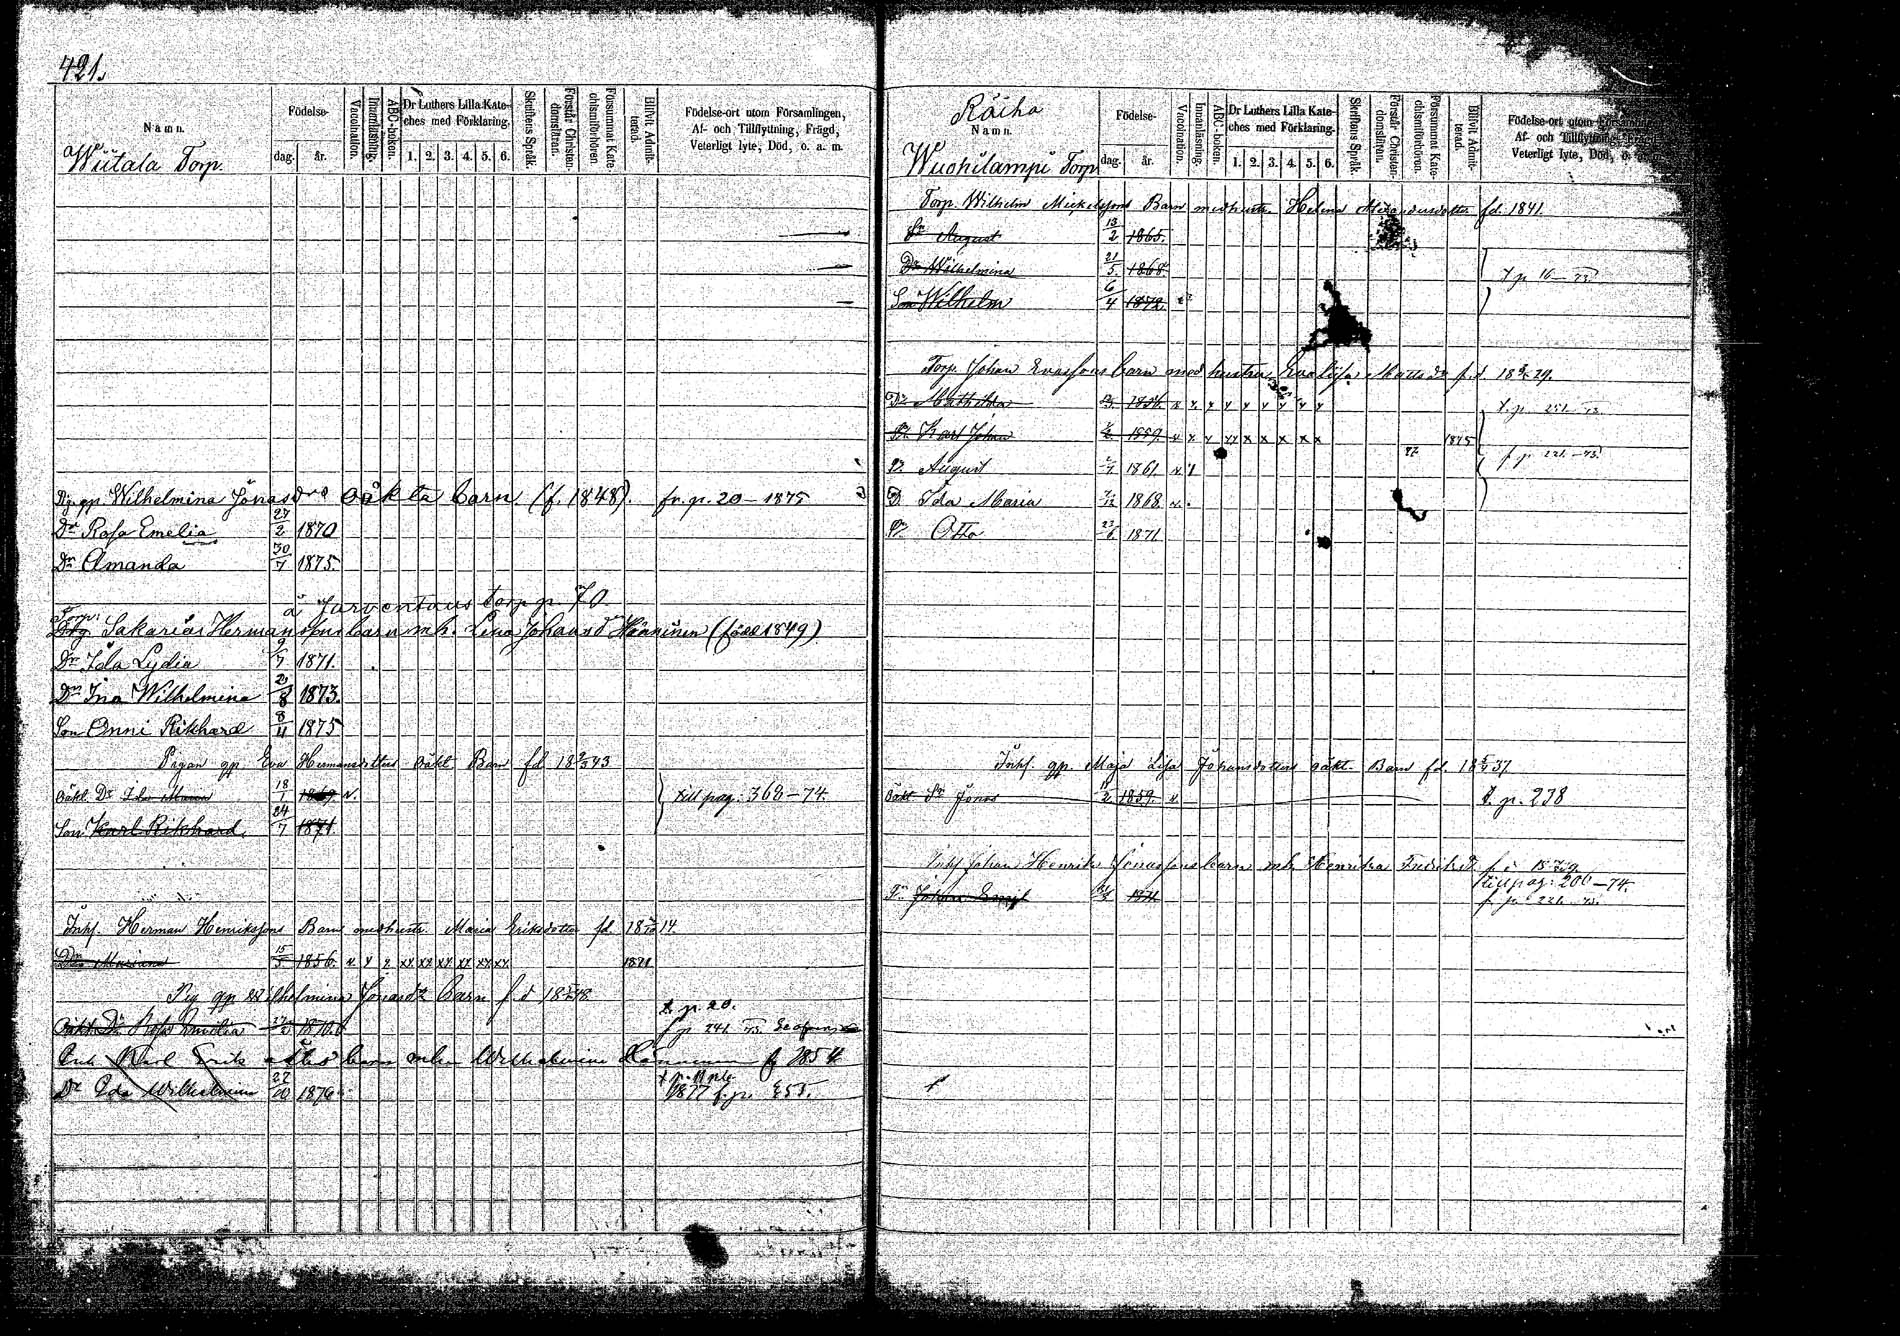 421.
Namn.
Födelse-
dag. år.
Vaccination.
Innanläsning.
ABC-boken.
Dr Luthers Lilla Kate-
ches med Förklaring.
1. 2. 3. 4. 5. 6.
Skriftens Språk.
Förstår Christen-
domsläran.
Försummat Kate-
chismiförhören.
Blifvit Admit-
terad.
Födelse-ort utom Församlingen,
Af- och Tillflyttning, Frägd,
Veterligt lyte, Död, o. a. m.
Wiitala Torp.
Pig. gp. Wilhelmina Jönasdrs oäkta barn (f. 1848). fr. p. 20 – 1875
Dr Rosa Emelia 27/2 1870
Dr Amanda 30/7 1875.
å Jarventaus torp p. 70.
Torp. Sakarias Hermanssons barn m.h. Lena Johansdr Hänninen (född 1849)
Dr Ida Lydia 9/7 1871.
Dr Ina Wilhelmina 20/8 1873.
Son Onni Rikhard 8/11 1875
Pigan gp. Eva Hermansdotters oäkt. Barn fd. 18 9/3 43
oäkt. Dr Ida Maria 18/1 1869 v. till pag. 368–74.
Son Karl Rikhard. 24/7 1871.
Inhs. Herman Henrikssons Barn med hustr. Maria Eriksdotter fd. 18 14.
Dr Mariana 15/5 1856. v. x x xx xx xx xx xx xx 1871
Pig gp Wilhelmina Jönasdr Barn f.d 18 48
t. p. 20.
oäkt Dr Rosa Emelia 27/2 1870. f p 241 73.
Karl Erik barn mhu Wilhelmina Hänninen f 1854
Dr Ida Wilhelmina 22/10 1876 1877 f. p. 255.
Räihä
Namn.
Födelse-
dag. år.
Vaccination.
Innanläsning.
ABC-boken.
Dr Luthers Lilla Kate-
ches med Förklaring.
1. 2. 3. 4. 5. 6.
Skriftens Språk.
Förstår Christen-
domsläran.
Försummat Kate-
chismiförhören.
Blifvit Admit-
terad.
Födelse-ort utom Församlingen
Af- och Tillflyttning,
Veterligt lyte, Död, o.
Wuohilampi Torp
Torp. Wilhelm Mickelssons Barn med hustr. Helena fd. 1841.
Sn August 13/2 1865.
Dr Wilhelmina 21/5 1868. t p. 16 – 73
Son Wilhelm 6/4 1872.
Torp. Johan Evassons barn med hustru Eva Lisa Matts dr f.d. 18 29.
Dr Mathilda 1856. x x x x x x x x x t. p. 251 – 73
Sn Karl Johan 1859. x x x xx x x x x x 77 1875
Sn August 1861 f p 221 – 73.
D. Ida Maria 1868
Sn Otto 23/6 1871
Inhs. gp. Maja Lisa Johansdotters oäkt. Barn fd. 18 37
oäkt Sn Jonas 11/2 1859. v. t. p. 238
Inhs Johan Henrik Jönassons barn mh. Henrika Fredriksdr
till pag: 206–74.
Sn Johan Emil f p 221 73.